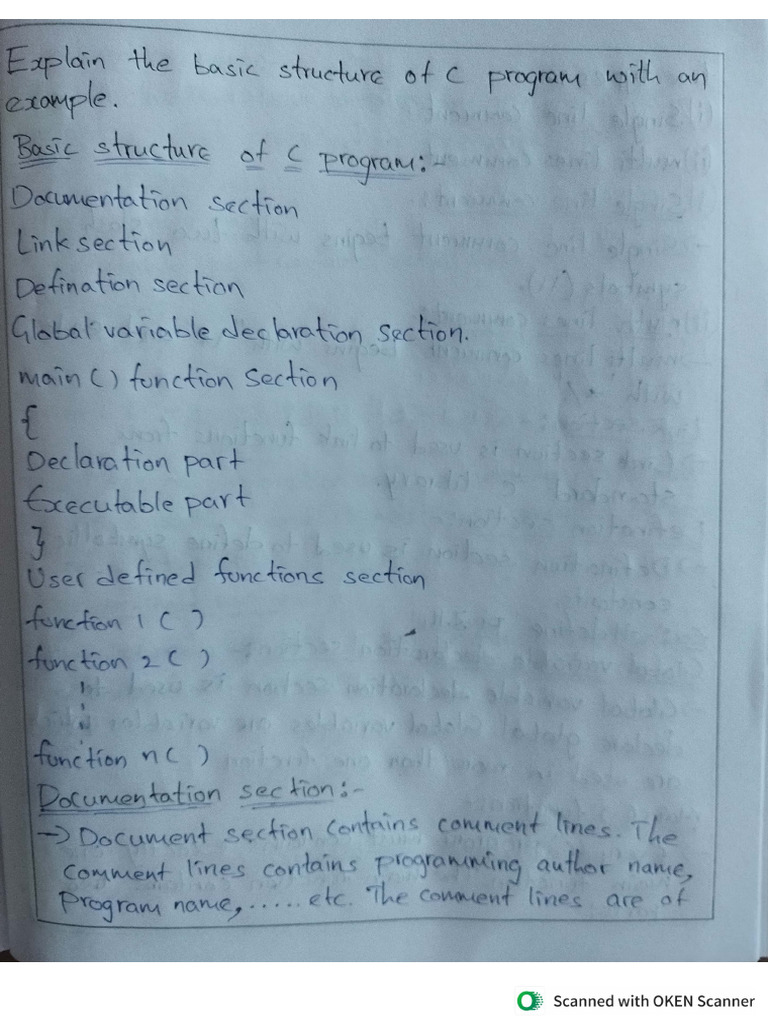 Explain the basic structure of C program with an
example.
Basic structure of C program:-
Documentation section
Link section
Defination section
Global variable declaration section.
main() function section
{
Declaration part
Executable part
}
User defined functions section
function 1 ( )
function 2 ( )
function n ( )
Documentation section:-
→ Document section contains comment lines. The
comment lines contains programming author name,
Program name,..... etc. The comment lines are of
Scanned with OKEN Scanner